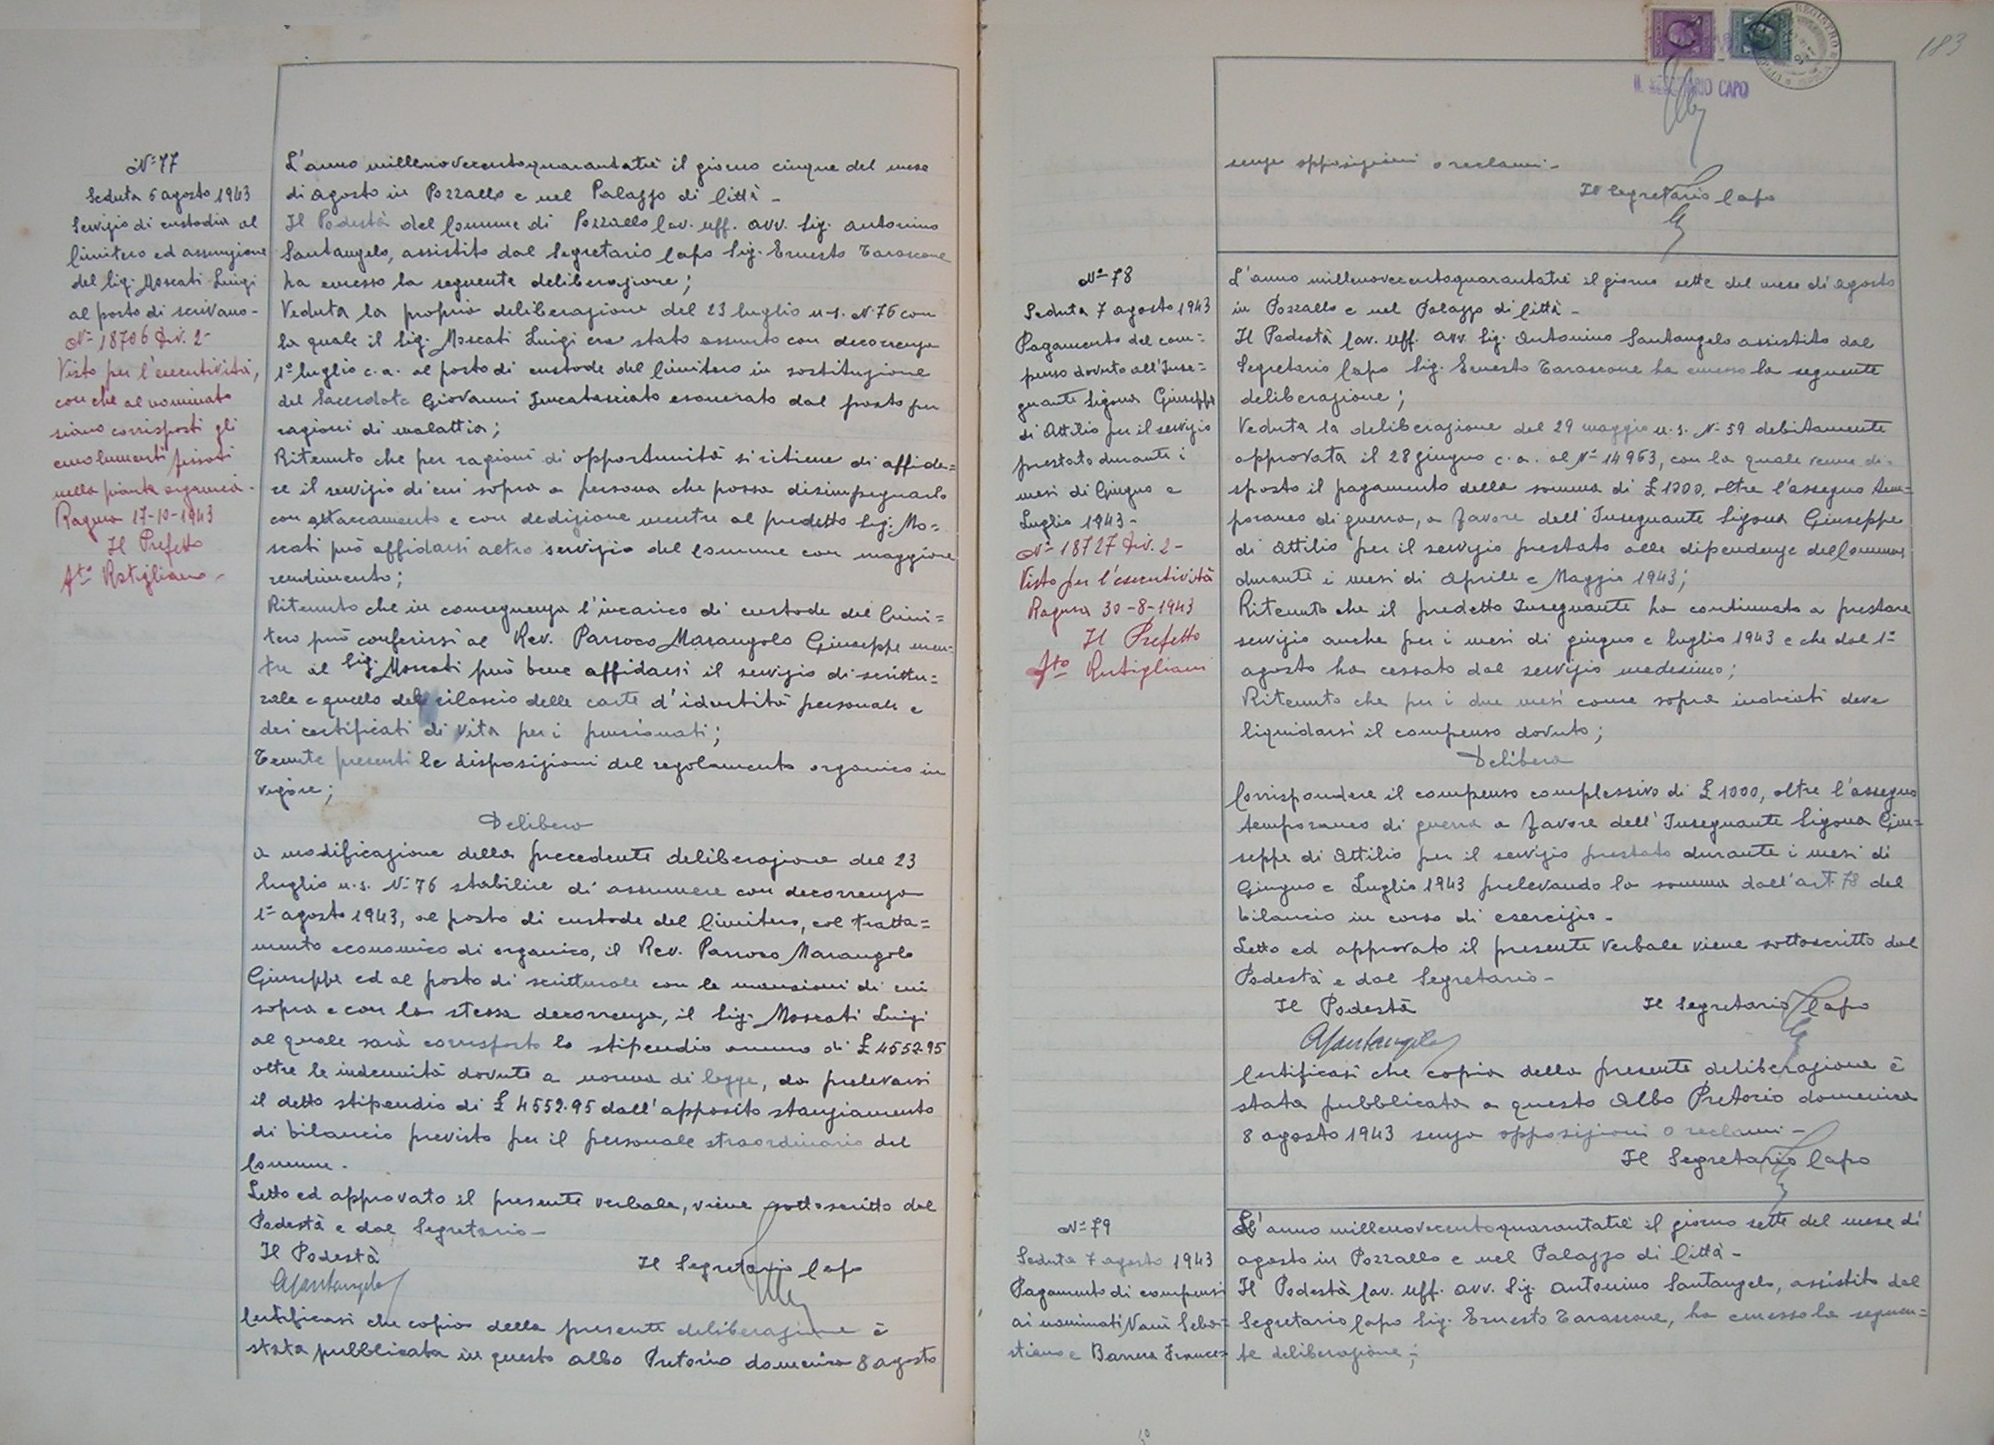 N° 77
Seduta 5 agosto 1943
Servizio di custodia al
Cimitero ed assunzione
del Sig. Moscati Luigi
al posto di scrivano-
N° 18706 Div. 2-
Visto per l'esecutività,
con che al nominato
siano corrisposti gli
emolumenti fissati
nella pianta organica.
Ragusa 17-10-1943
Il Prefetto
L'anno millenovecentoquarantatrè il giorno cinque del mese
di agosto in Pozzallo e nel Palazzo di Città -
Il Podestà del Comune di Pozzallo Cav. Uff. avv. Sig. Antonino
Santangelo, assistito dal Segretario Capo Sig. Ernesto Tarascone
ha emesso la seguente deliberazione;
Veduta la propria deliberazione del 23 luglio u.s. N. 76 con
la quale il Sig. Moscati Luigi era stato assunto con decorrenza
1° luglio c.a. al posto di custode del Cimitero in sostituzione
del Sacerdote Giovanni esonerato dal posto per
ragioni di malattia;
Ritenuto che per ragioni di opportunità si ritiene di affida=
re il servizio di cui sopra a persona che possa disimpegnarlo
con attaccamento e con dedizione mentre al predetto Sig. Mo=
scati può affidarsi altro servizio del Comune con maggiore
rendimento;
Ritenuto che in conseguenza l'incarico di custode del Cimi=
tero può conferirsi al Rev. Parroco Marangolo Giuseppe men=
tre al Sig. Moscati può bene affidarsi il servizio di scrittu=
rale e quello del rilascio delle carte d'identità personale e
dei certificati di vita per i pensionati;
Tenute presenti le disposizioni del regolamento organico in
vigore;
Delibera
a modificazione della precedente deliberazione del 23
luglio u.s. N° 76 stabilire di assumere con decorrenza
1° agosto 1943, al posto di custode del Cimitero, col tratta=
mento economico di organico, il Rev. Parroco Marangolo
Giuseppe ed al posto di scritturale con le mansioni di cui
sopra e con la stessa decorrenza, il Sig. Moscati Luigi
al quale sarà corrisposto lo stipendio annuo di £ 4552.95
oltre le indennità dovute a norma di legge, da prelevarsi
il detto stipendio di £ 4552.95 dall'apposito stanziamento
di bilancio previsto per il personale straordinario del
Comune.
Letto ed approvato il presente verbale, viene sottoscritto dal
Podestà e dal Segretario-
Il Podestà Il Segretario Capo
ASantangelo
Certificasi che copia della presente deliberazione è
stata pubblicata in questo albo Pretorio domenica 8 agosto
183
IL SEGRETARIO CAPO
senza opposizioni o reclami.-
Il Segretario Capo
N° 78
Seduta 7 agosto 1943
Pagamento del com=
penso dovuto all'Inse=
gnante Sigona Giuseppe
di Attilio per il servizio
prestato durante i
mesi di Giugno e
Luglio 1943-
N° 18727 Div. 2-
Visto per l'esecutività
Ragusa 30-8-1943
Il Prefetto
L'anno millenovecentoquarantatrè il giorno sette del mese di agosto
in Pozzallo e nel Palazzo di Città -
Il Podestà Cav. Uff. Avv. Sig. Antonino Santangelo assistito dal
Segretario Capo Sig. Ernesto Tarascone ha emesso la seguente
deliberazione;
Veduta la deliberazione del 29 maggio u.s. N. 59 debitamente
approvata il 28 giugno c.a. al N° 14963, con la quale venne di=
sposto il pagamento della somma di £ 1000, oltre l'assegno tem=
poraneo di guerra, a favore dell'Insegnante Sigona Giuseppe
di Attilio per il servizio prestato alle dipendenze del Comune
durante i mesi di Aprile e Maggio 1943;
Ritenuto che il predetto Insegnante ha continuato a prestare
servizio anche per i mesi di giugno e luglio 1943 e che dal 1°
agosto ha cessato dal servizio medesimo;
Ritenuto che per i due mesi come sopra indicati deve
liquidarsi il compenso dovuto;
Delibera
Corrispondere il compenso complessivo di £ 1000, oltre l'assegno
temporaneo di guerra a favore dell'Insegnante Sigona Giu=
seppe di Attilio per il servizio prestato durante i mesi di
Giugno e Luglio 1943 prelevando la somma dall'art. 78 del
bilancio in corso di esercizio.
Letto ed approvato il presente verbale viene sottoscritto dal
Podestà e dal Segretario-
Il Podestà Il Segretario Capo
ASantangelo
Certificasi che copia della presente deliberazione è
stata pubblicata a questo Albo Pretorio domenica
8 agosto 1943 senza opposizioni o reclami -
Il Segretario Capo
N° 79
Seduta 7 agosto 1943
Pagamento di compensi
ai nominati Seba=
stiano e Barrera France=
L'anno millenovecentoquarantatrè il giorno sette del mese di
agosto in Pozzallo e nel Palazzo di Città -
Il Podestà Cav. Uff. avv. Sig. Antonino Santangelo, assistito dal
Segretario Capo Sig. Ernesto Tarascone, ha emesso la seguen=
te deliberazione;